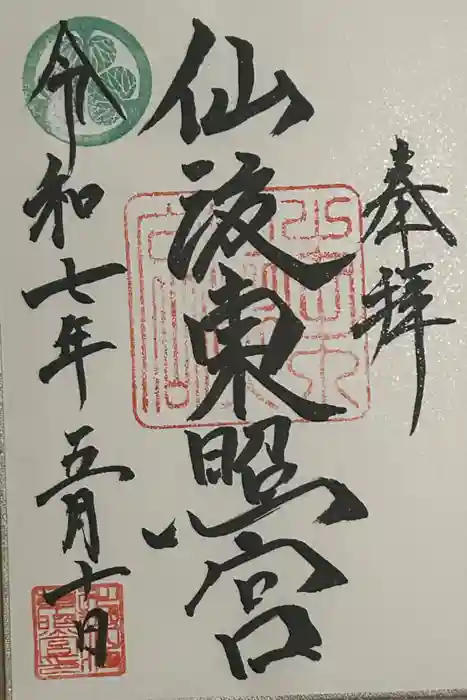 奉拝
仙波東照宮
令和七年 五月十日